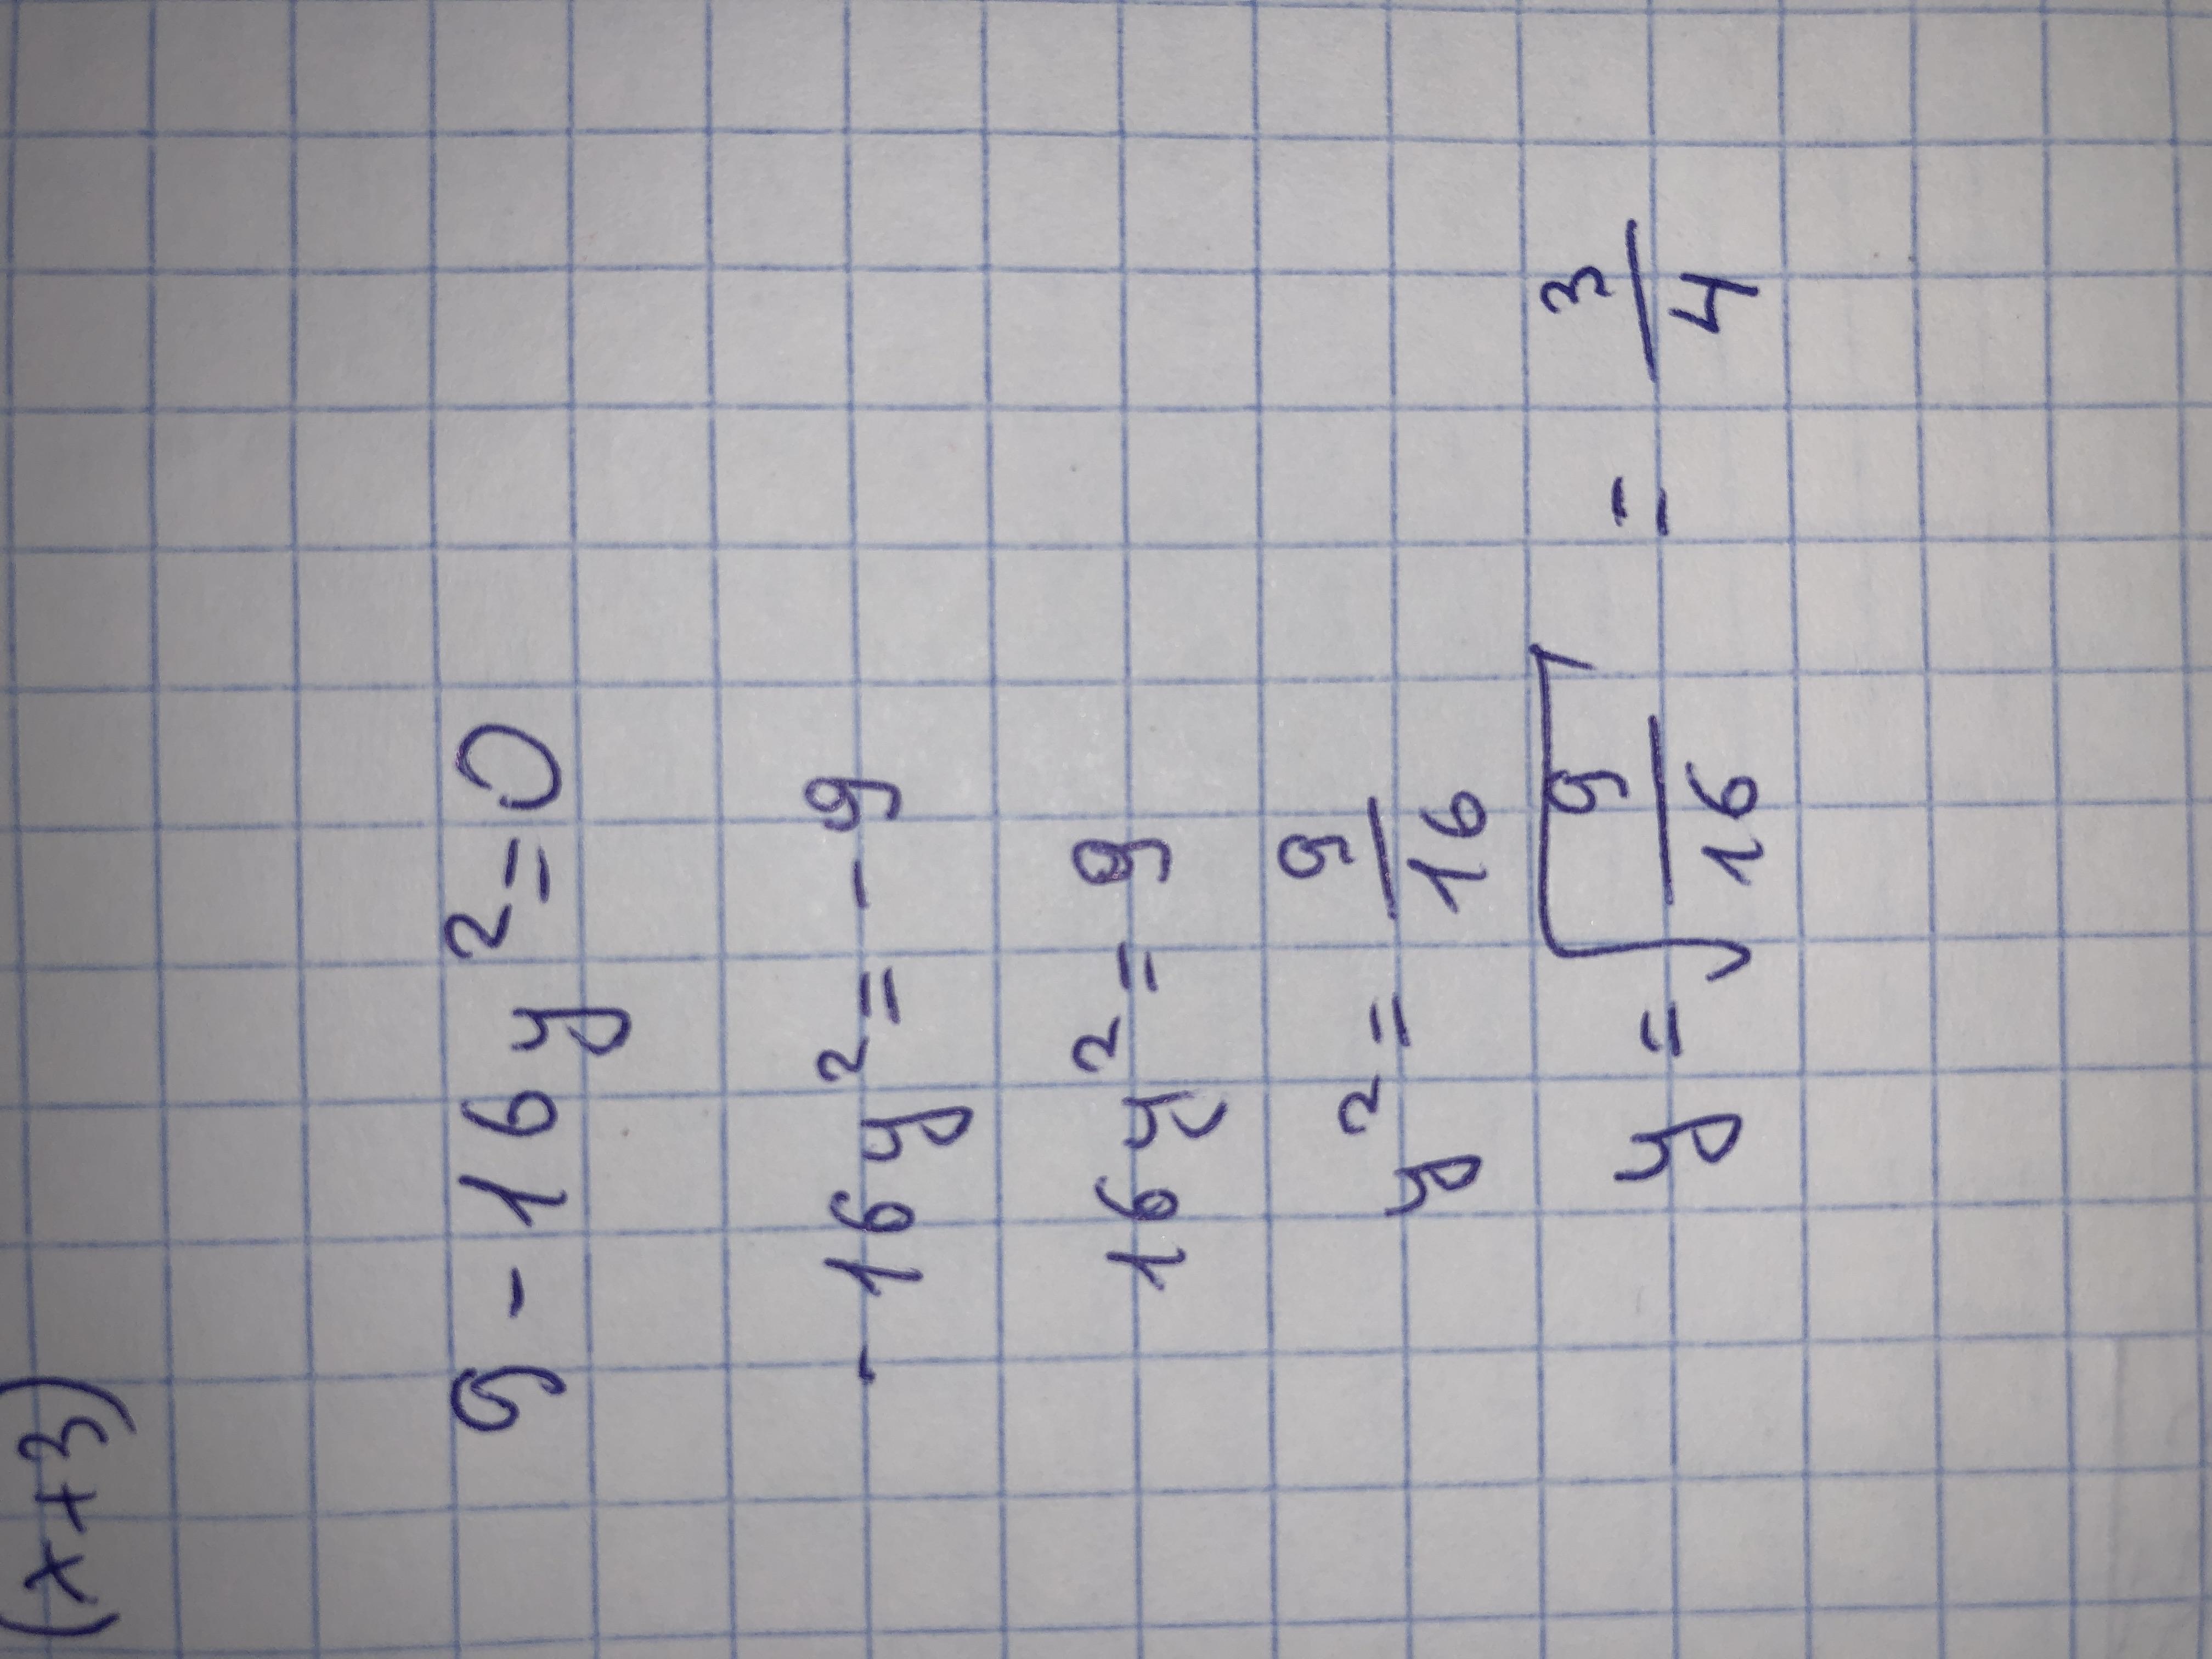 (x+3)
9-16y²=0
-16y²=-9
16y²=9
y²=9/16
y=√9/16=3/4